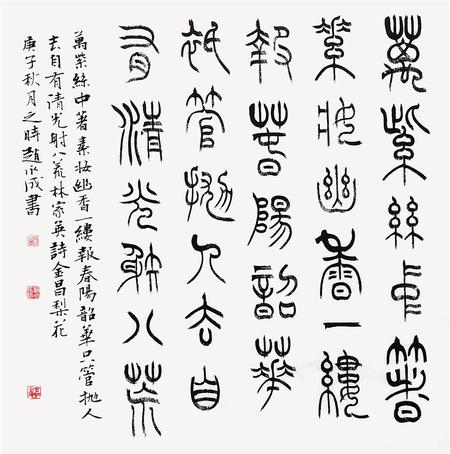 萬紫絲中著
素妝幽香一縷
報春陽韶華
祇管拋人去自
有清光射八荒
萬紫絲中著素妝幽香一縷報春陽韶華只管拋人
去自有清光射八荒林家英詩金昌梨花
庚子秋月之時趙永成書